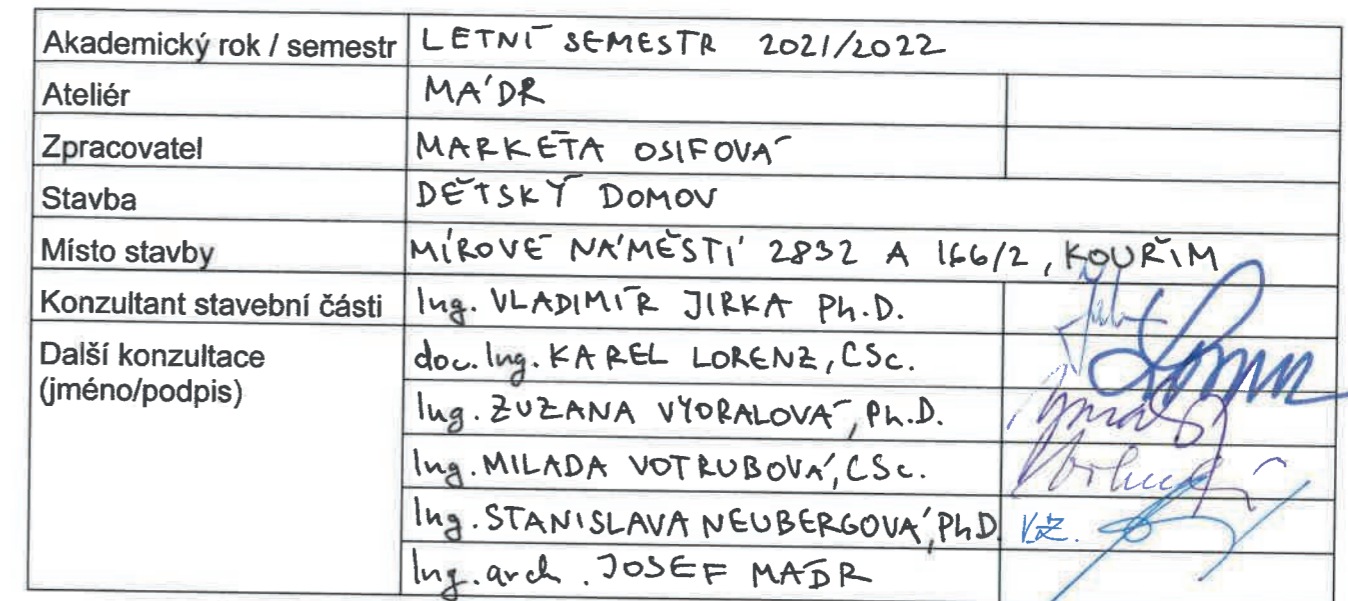 Akademický rok / semestr LETNÍ SEMESTR 2021/2022
Ateliér MÁDR
Zpracovatel MARKÉTA OSIFOVÁ
Stavba DĚTSKÝ DOMOV
Místo stavby MÍROVÉ NÁMĚSTÍ 2832 A 166/2, KOUŘIM
Konzultant stavební části Ing. VLADIMÍR JIRKA Ph.D.
Další konzultace doc. Ing. KAREL LORENZ, CSc.
(jméno/podpis)
Ing. ZUZANA VYORALOVÁ, Ph.D.
Ing. MILADA VOTRUBOVÁ, CSc.
Ing. STANISLAVA NEUBERGOVÁ, PhD. VZ.
Ing. arch. JOSEF MÁDR